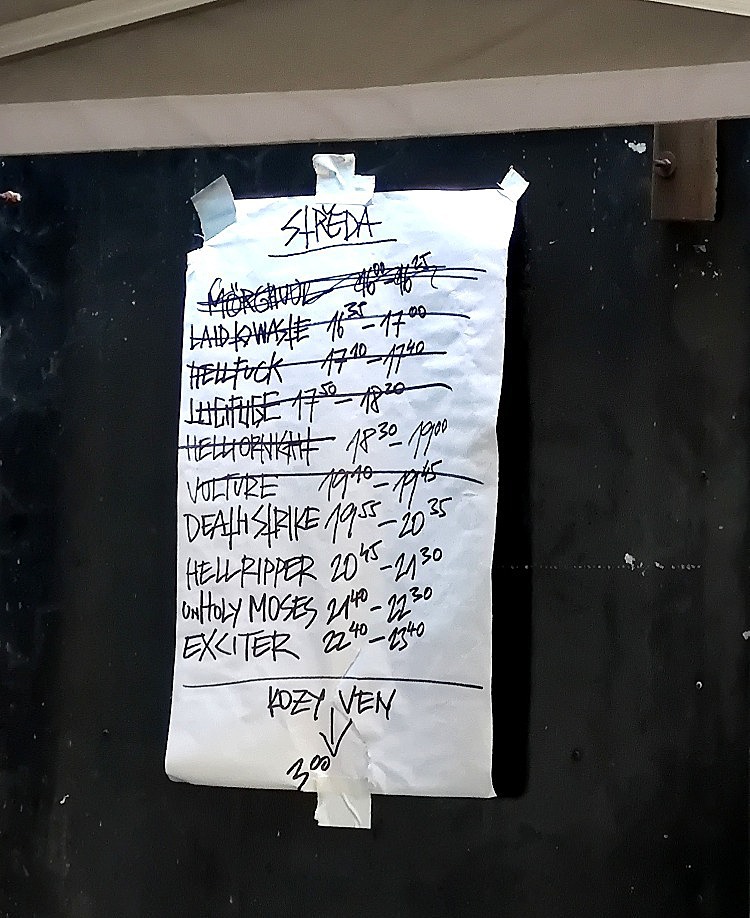 STŘEDA
MÖRGHUUL 16⁰⁰-16²⁵
LAID 16³⁵-17⁰⁰
HELLFUCK 17¹⁰-17⁴⁰
LUCIFUGE 17⁵⁰-18²⁰
HELLTORNIGHT 18³⁰-19⁰⁰
VULTURE 19¹⁰-19⁴⁵
DEATH STRIKE 19⁵⁵-20³⁵
HELLRIPPER 20⁴⁵-21³⁰
UNHOLY MOSES 21⁴⁰-22³⁰
EXCITER 22⁴⁰-23⁴⁰
KOZY VEN
↓
3⁰⁰